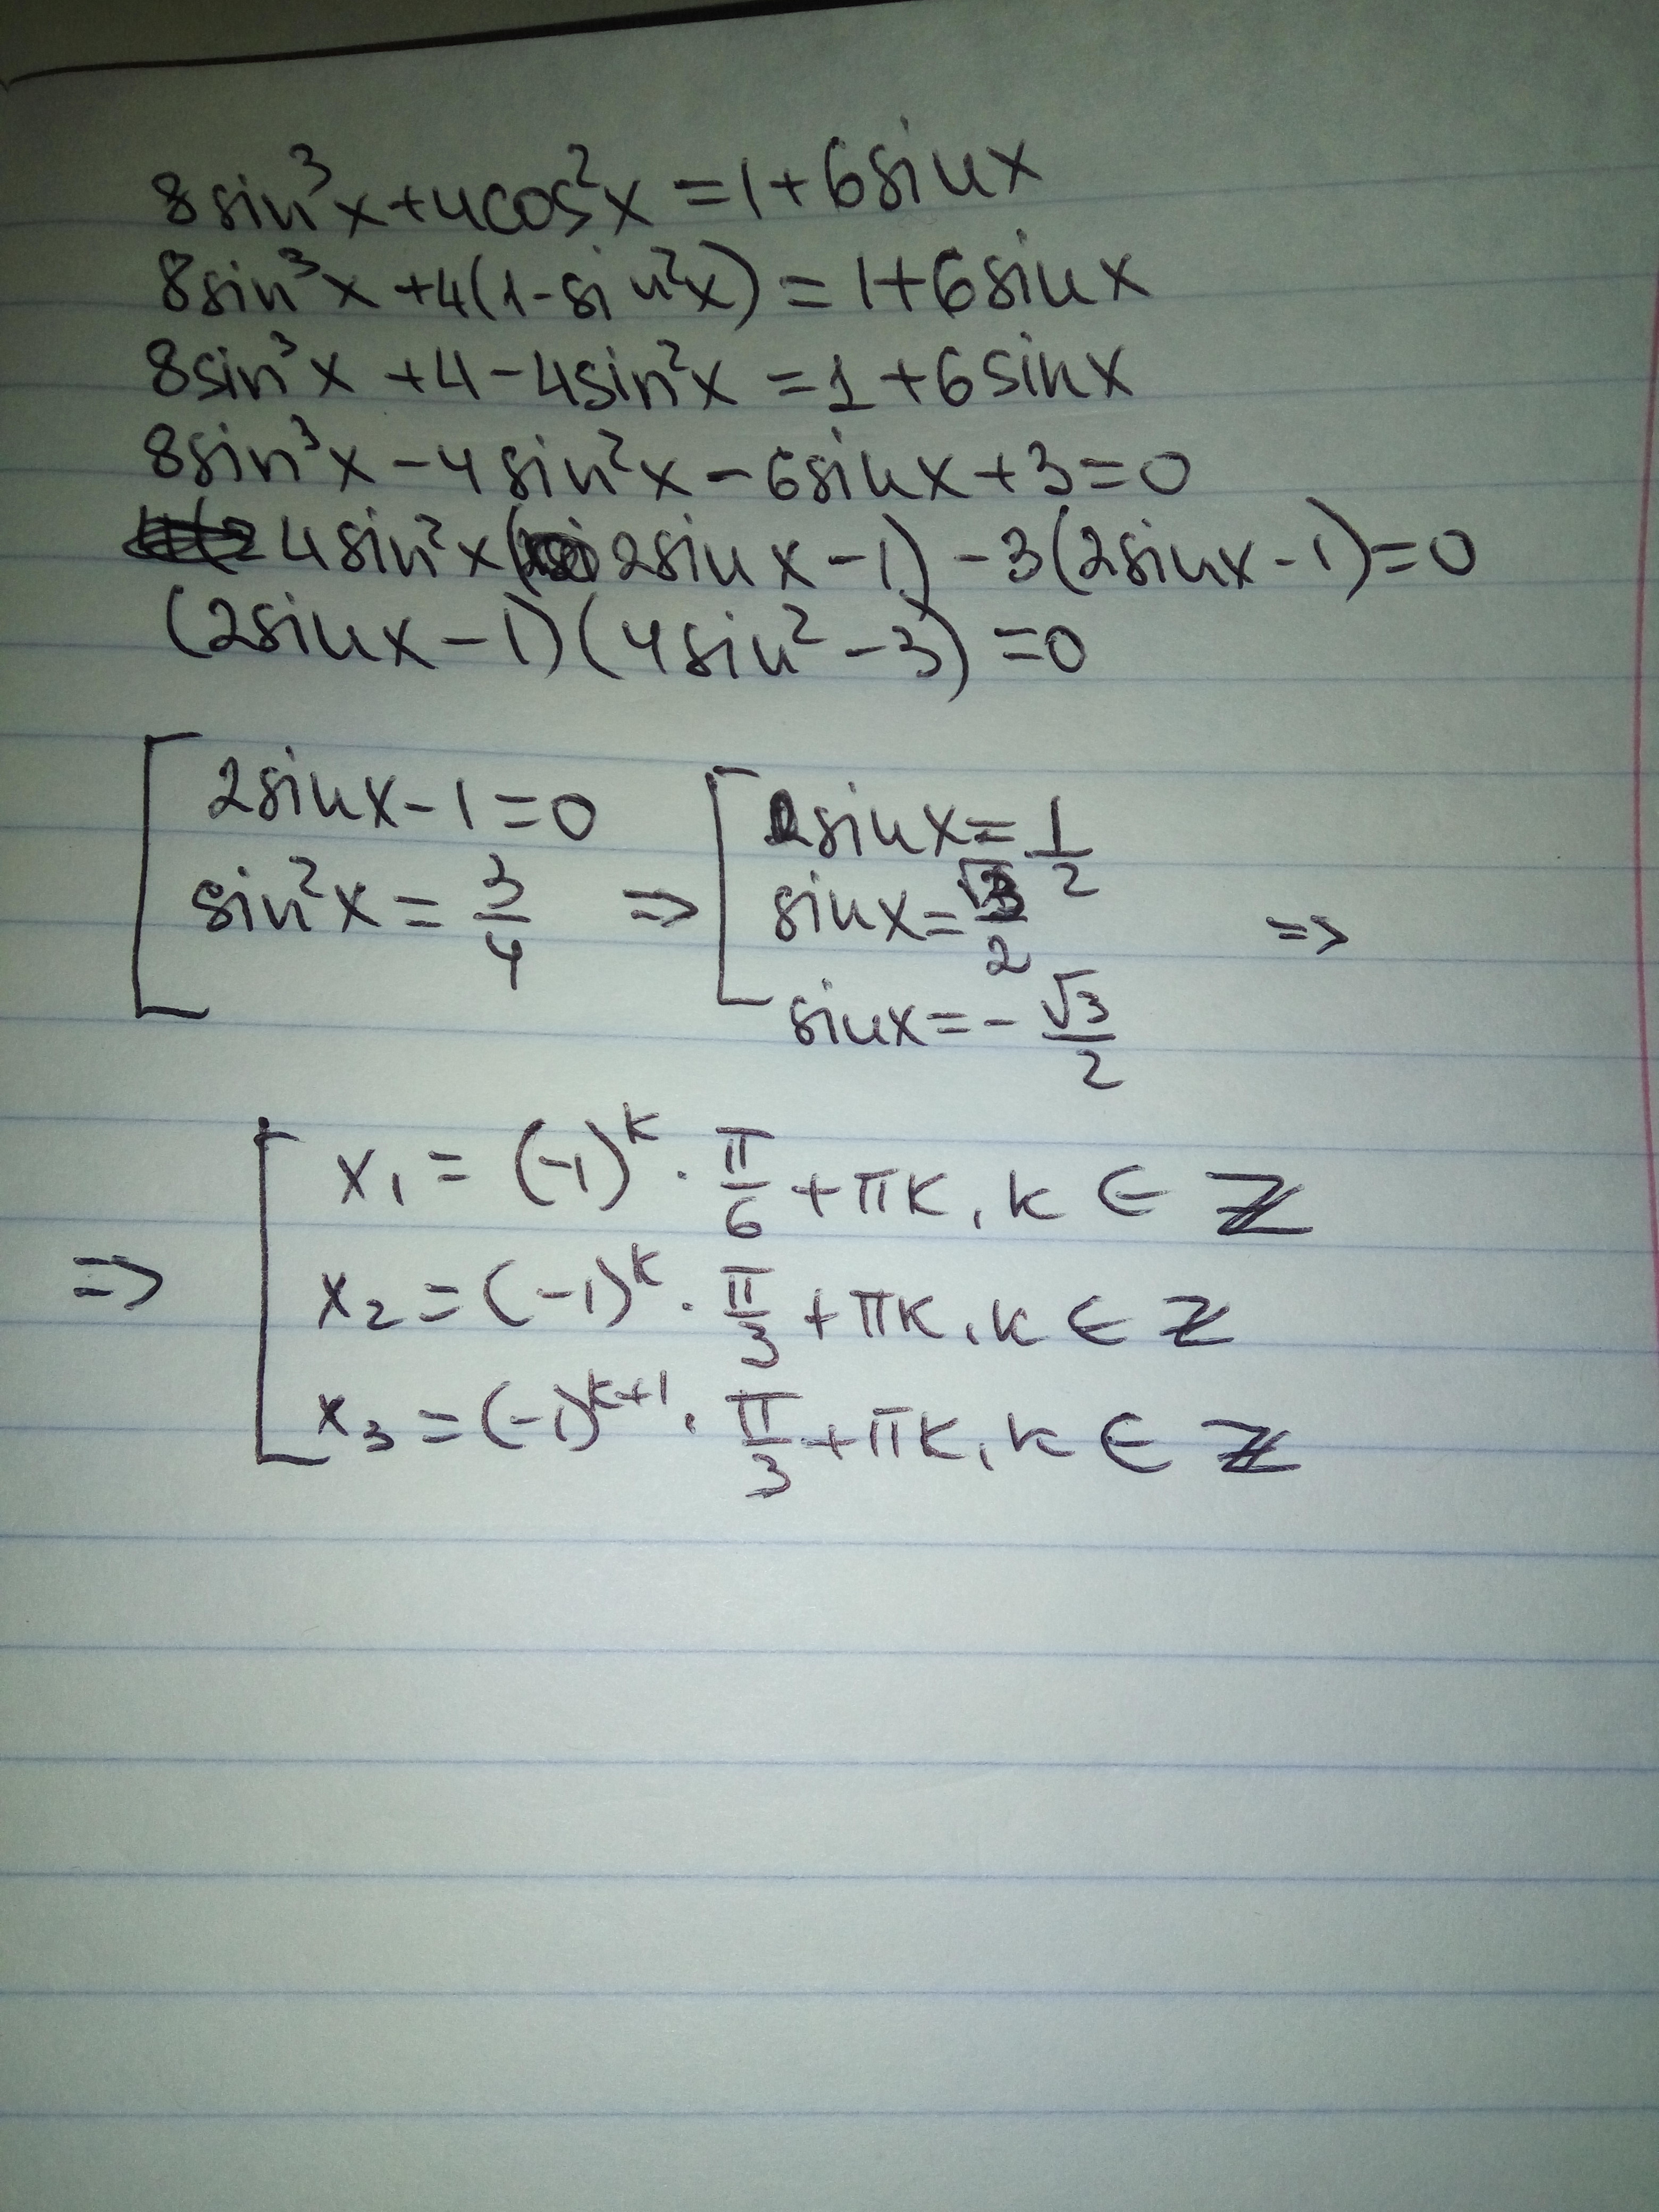 8sin³x+4cos²x=1+6sinx
8sin³x+4(1-sin²x)=1+6sinx
8sin³x+4-4sin²x=1+6sinx
8sin³x-4sin²x-6sinx+3=0
4sin²x(2sinx-1)-3(2sinx-1)=0
(2sinx-1)(4sin²-3)=0
[2sinx-1=0
sin²x=3/4
=> [sinx=1/2
sinx=√3/2
sinx=-√3/2
=>
=> [x₁=(-1)ᵏ·π/6+πk, k∈ℤ
x₂=(-1)ᵏ·π/3+πk, k∈ℤ
x₃=(-1)ᵏ⁺¹·π/3+πk, k∈ℤ